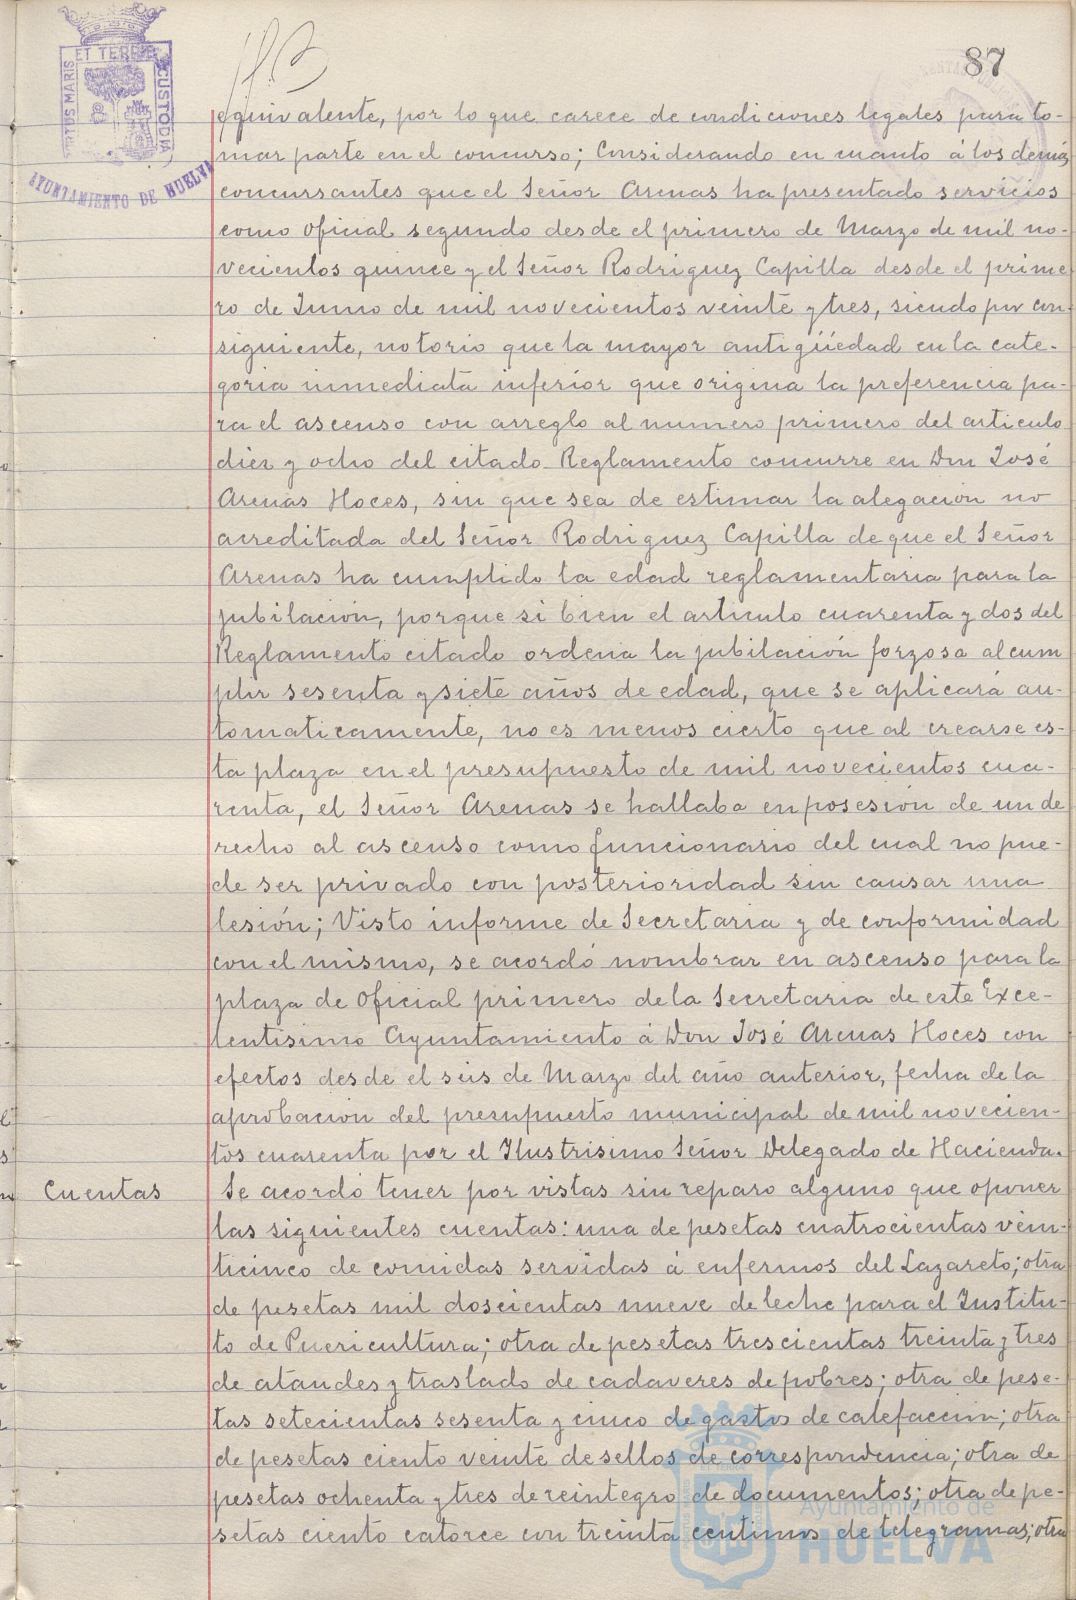 PORTUS MARIS ET TERRE CUSTODIA
AYUNTAMIENTO DE HUELVA
87
equivalente, por lo que carece de condiciones legales para to-
mar parte en el concurso; Considerando en cuanto á los demás
concursantes que el Señor Arenas ha presentado servicios
como oficial segundo desde el primero de Marzo de mil no-
vecientos quince y el Señor Rodriguez Capilla desde el prime-
ro de Junio de mil novecientos veinte y tres, siendo por con-
siguiente, notorio que la mayor antigüedad en la cate-
goria inmediata inferior que origina la preferencia pa-
ra el ascenso con arreglo al numero primero del articulo
diez y ocho del citado Reglamento concurre en Don José
Arenas Hoces, sin que sea de estimar la alegación no
acreditada del Señor Rodriguez Capilla de que el Señor
Arenas ha cumplido la edad reglamentaria para la
jubilación, porque si bien el artículo cuarenta y dos del
Reglamento citado ordena la jubilación forzosa al cum
plir sesenta y siete años de edad, que se aplicará au-
tomaticamente, no es menos cierto que al crearse es-
ta plaza en el presupuesto de mil novecientos cua-
renta, el Señor Arenas se hallaba en posesión de un de
recho al ascenso como funcionario del cual no pue-
de ser privado con posterioridad sin causar una
lesión; Visto informe de Secretaria y de conformidad
con el mismo, se acordó nombrar en ascenso para la
plaza de Oficial primero de la Secretaria de este Exce-
lentisimo Ayuntamiento á Don José Arenas Hoces con
efectos desde el seis de Marzo del año anterior, fecha de la
aprobación del presupuesto municipal de mil novecien-
tos cuarenta por el Ilustrisimo Señor Delegado de Hacienda.
Cuentas Se acordó tener por vistas sin reparo alguno que oponer
las siguientes cuentas: una de pesetas cuatrocientas vein-
ticinco de comidas servidas á enfermos del Lazareto; otra
de pesetas mil doscientas nueve de leche para el Institu-
to de Puericultura; otra de pesetas trescientas treinta y tres
de ataudes y traslado de cadaveres de pobres; otra de pese-
tas setecientas sesenta y cinco de gastos de calefacción; otra
de pesetas ciento veinte de sellos de correspondencia; otra de
pesetas ochenta y tres de reintegro de documentos; otra de pe-
setas ciento catorce con treinta centimos de telegramas; otra
Ayuntamiento de
HUELVA